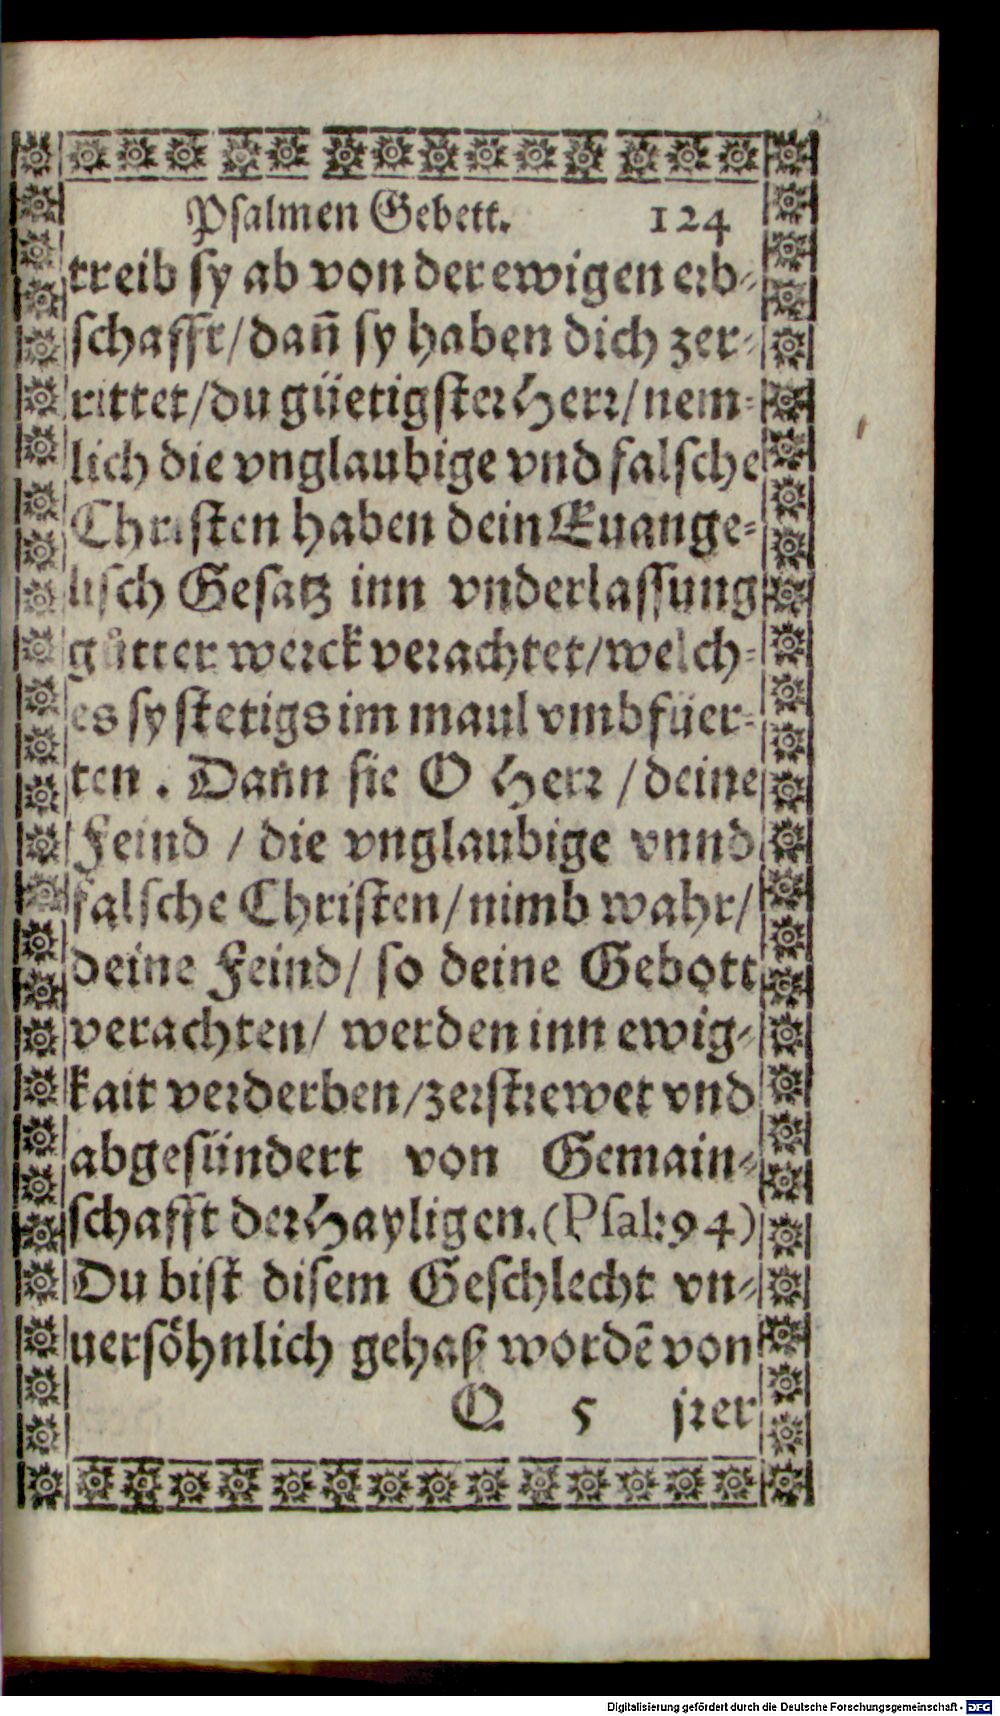 Psalmen Gebett. 124
treib sy ab von der ewigen erb-
schafft/dañ sy haben dich zer-
rittet/du güetigster Herr/nem-
lich die vnglaubige vnd falsche
Christen haben dein Euange-
lisch Gesatz inn vnderlassung
gůtter werck verachtet/welch-
es sy stetigs im maul vmbfüer-
ten. Dann sie O Herr/deine
Feind/die vnglaubige vnnd
falsche Christen/nimb wahr/
deine Feind/so deine Gebott
verachten/werden inn ewig-
kait verderben/zerstrewet vnd
abgesündert von Gemain-
schafft der Hayligen.(Psal:94)
Du bist disem Geschlecht vn-
uersöhnlich gehaß wordē von
Q 5 jrer
Digitalisierung gefördert durch die Deutsche Forschungsgemeinschaft - DFG